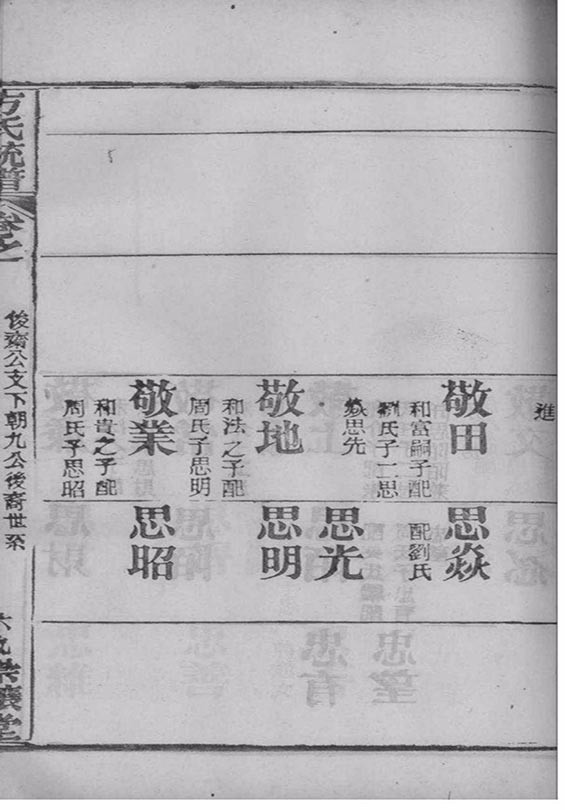 進
敬田
和富嗣子配
劉氏子二思
焱思先
思焱
配劉氏
思光
敬地
和法之子配
周氏子思明
思明
敬業
和貴之子配
周氏子思昭
思昭
方氏統譜
卷之一
俊齋公支下朝九公後裔世系
六九